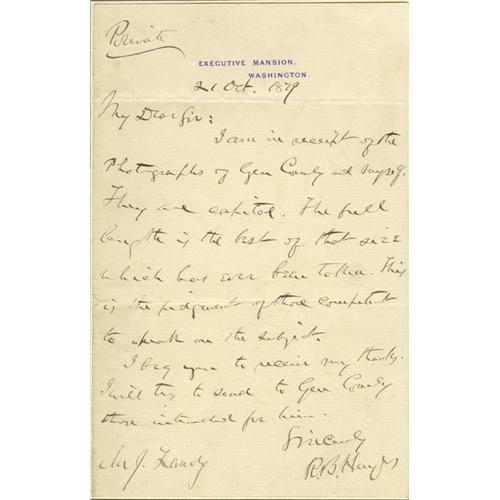 Private
EXECUTIVE MANSION,
WASHINGTON.
21 Oct. 1879
My Dear Sir:
I am in receipt of the
Photographs of Gen Comly and myself.
They are capital. The full
length is the best of that size
which has ever been taken. This
is the judgment of those competent
to speak on the subject.
I beg you to receive my thanks.
I will try to send to Gen Comly
those intended for him.
Sincerely
R.B. Hayes
Mr J. Landy